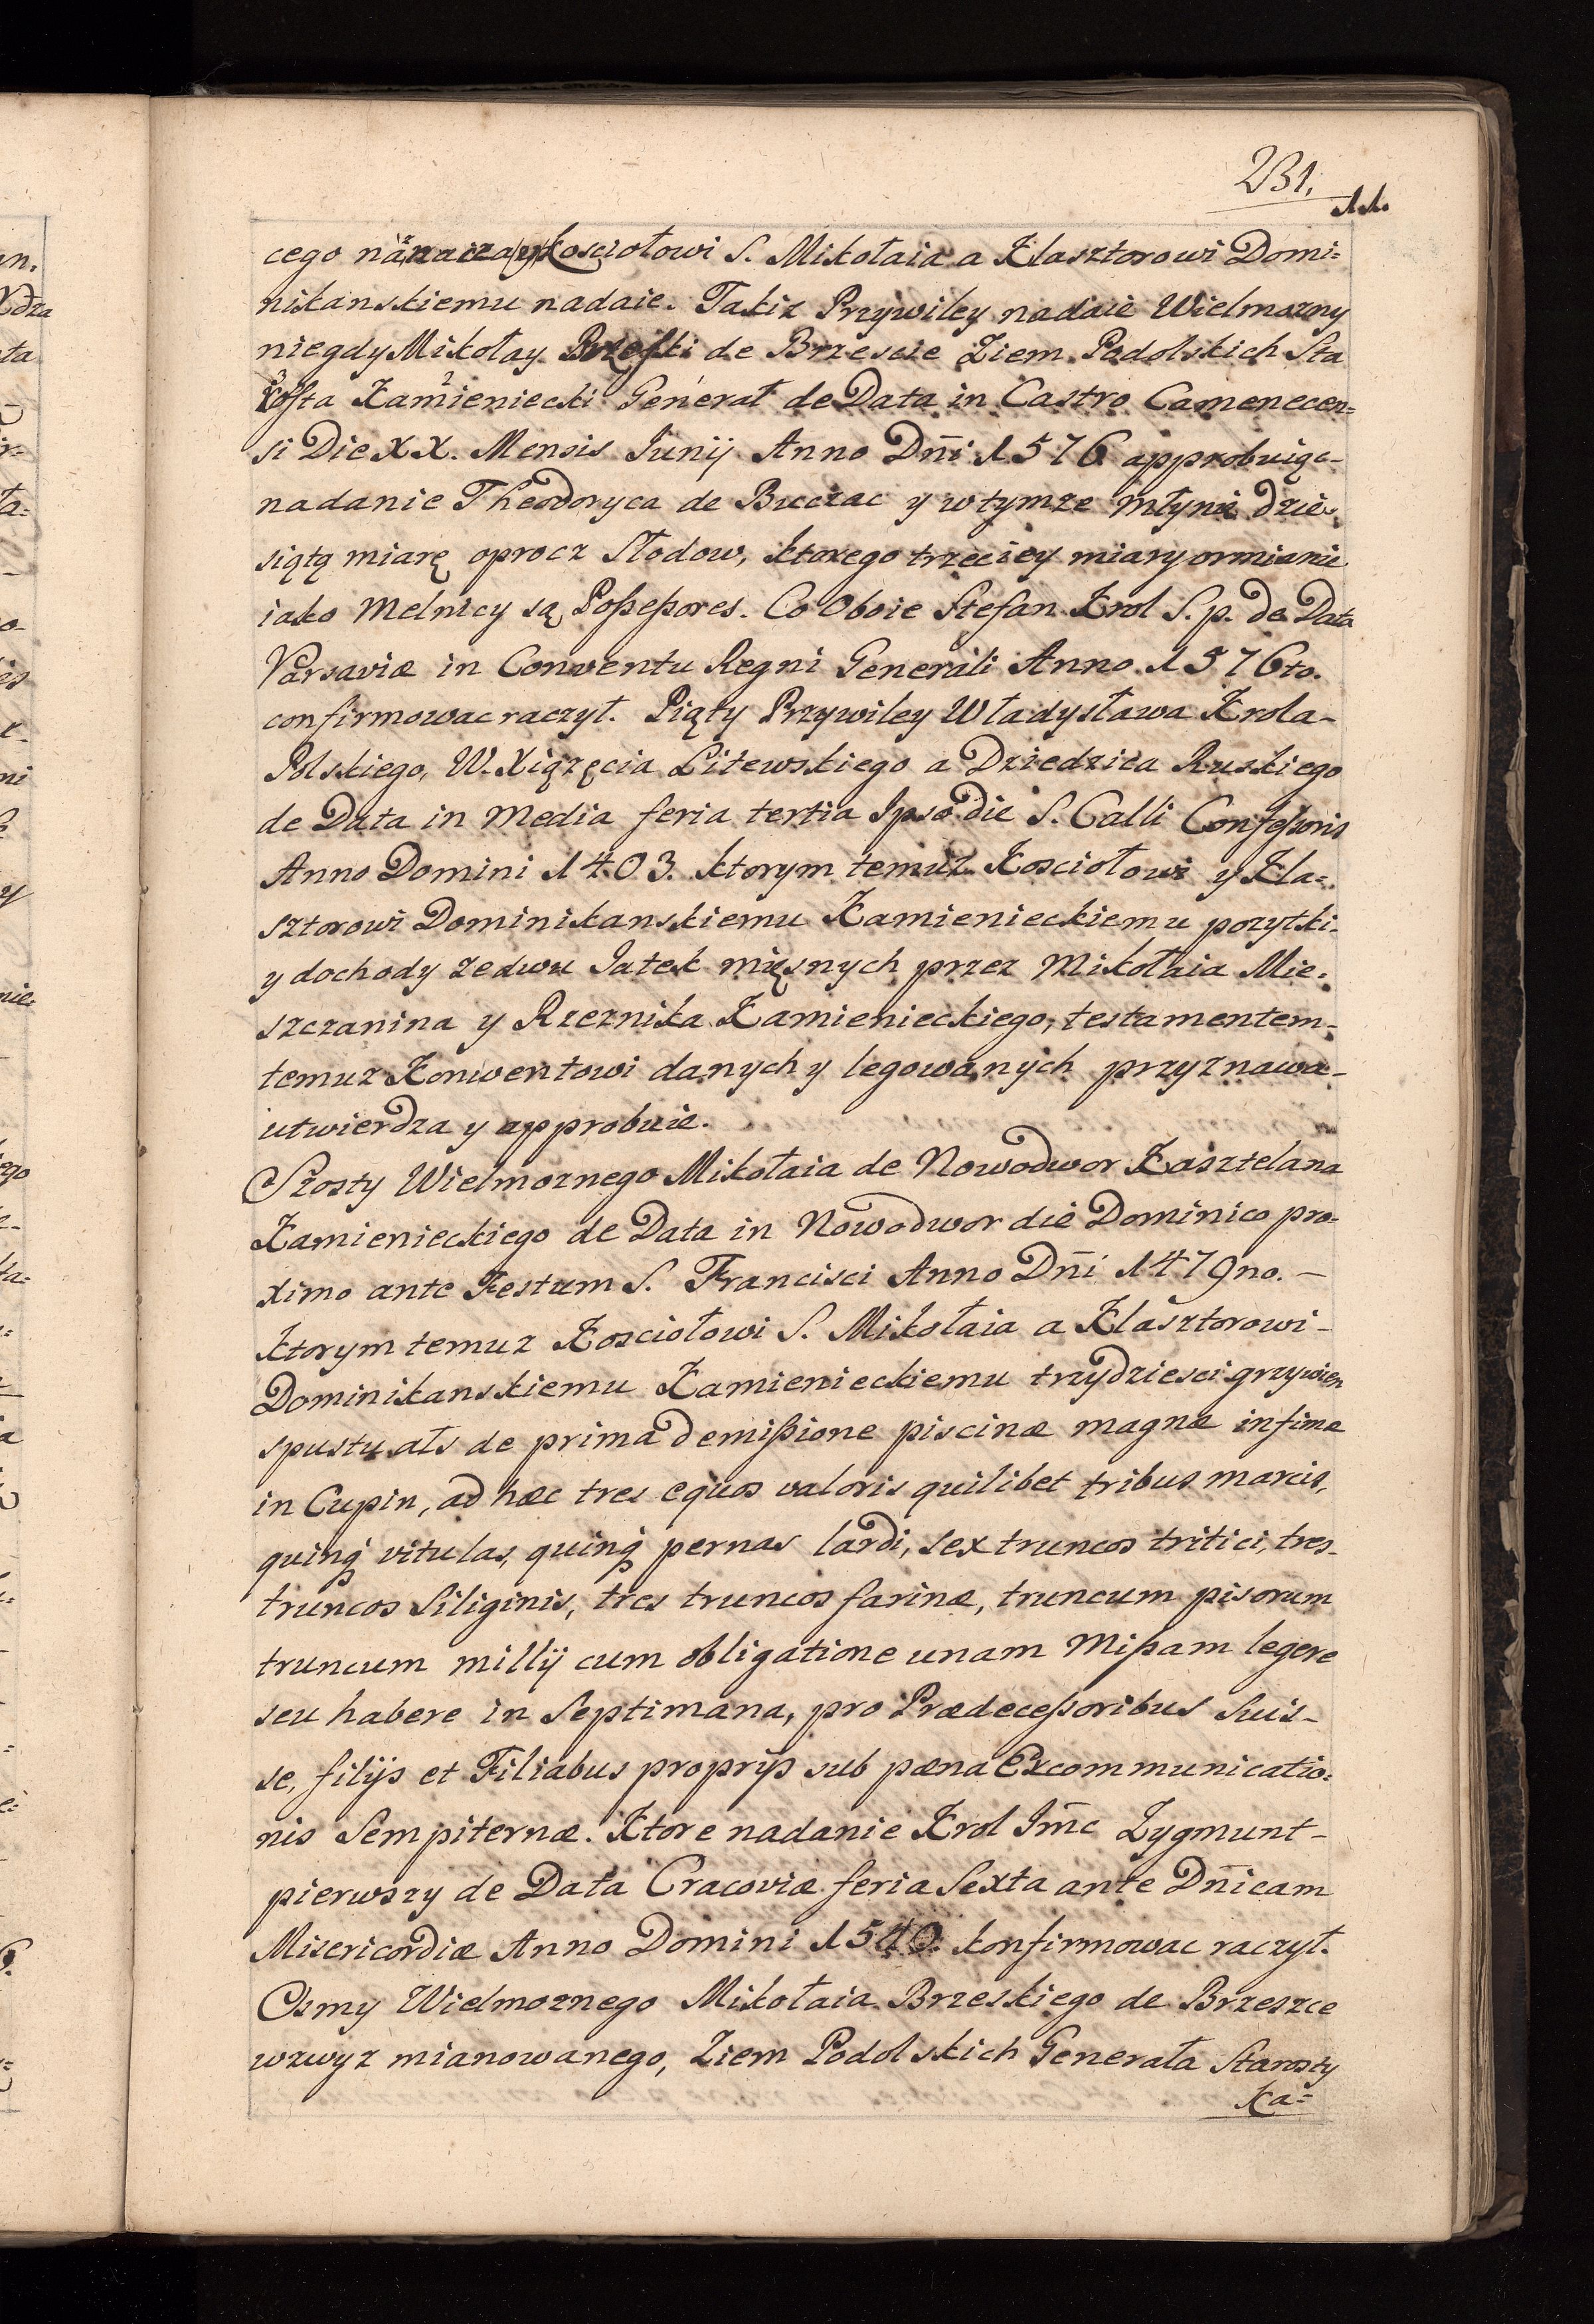 231.
11.
cego naznacza y Kosciołowi S. Mikołaia a Klasztorowi Domi=
nikanskiemu nadaie. Takiz Przywiley nadaie Wielmozny
niegdy Mikołay Brzeski de Brzescie Ziem Podolskich Sta
rosta Kamieniecki Generał de Data in Castro Camenecen=
si Die XX. Mensis Junij Anno Dn̄i 1576 approbuiąc-
nadanie Theodoryca de Buczac y w tymze Młynie dzie=
siątą miarę oprocz Słodow, ktorego trzeciey miary ormianie
iako Melnicy są Poßeßores. Co Oboie Stefan Krol S. p. de Data
Varsaviæ in Conventu Regni Generali Anno 1576to.
confirmowac raczył. Piąty Przywiley Władysława Krola-
Polskiego, W. Xiązęcia Litewskiego a Dziedzica Ruskiego
de Data in Media feria tertia Ipso die S. Calli Confeßoris
Anno Domini 1403. ktorym temuz Kosciołowi y Kla=
sztorowi Dominikanskiemu Kamienieckiemu pozytki.
y dochody ze dwu Jatek mięsnych przez Mikołaia Mie=
szczanina y Rzeznika Kamienieckiego, testamentem-
temuz Konwentowi danych y legowanych przyznawa-
utwierdza y approbuie.
Szosty Wielmoznego Mikołaia de Nowodwor Kasztelana
Kamienieckiego de Data in Nowodwor die Dominico pro=
ximo ante Festum S. Francisci Anno Dn̄i 1479no. -
ktorym temuz Kosciołowi S. Mikołaia a Klasztorowi-
Dominikanskiemu Kamienieckiemu trzydziesci grzywien
spustu als de prima demißione piscinæ magnæ infimæ
in Cupin, ad hæc tres equos valoris quilibet tribus marcis,
quinq; vitulas, quinq; pernas lardi, sex truncos tritici, tres-
truncos Siliginis, tres truncos farinæ, truncum pisorum
truncum millij cum obligatione unam Mißam legere
seu habere in Septimana, pro Prædeceßoribus Suis-
se, filijs et Filiabus proprijs sub pæna Excommunicatio=
nis Sempiternæ. Ktore nadanie Krol Jm̄c Zygmunt-
pierwszy de Data Cracoviæ feria Sexta ante Dn̄icam
Misericordiæ Anno Domini 1540. konfirmowac raczył.
Osmy Wielmoznego Mikołaia Brzeskiego de Brzeszce
wzwyz mianowanego, Ziem Podolskich Generała Starosty
Ka=